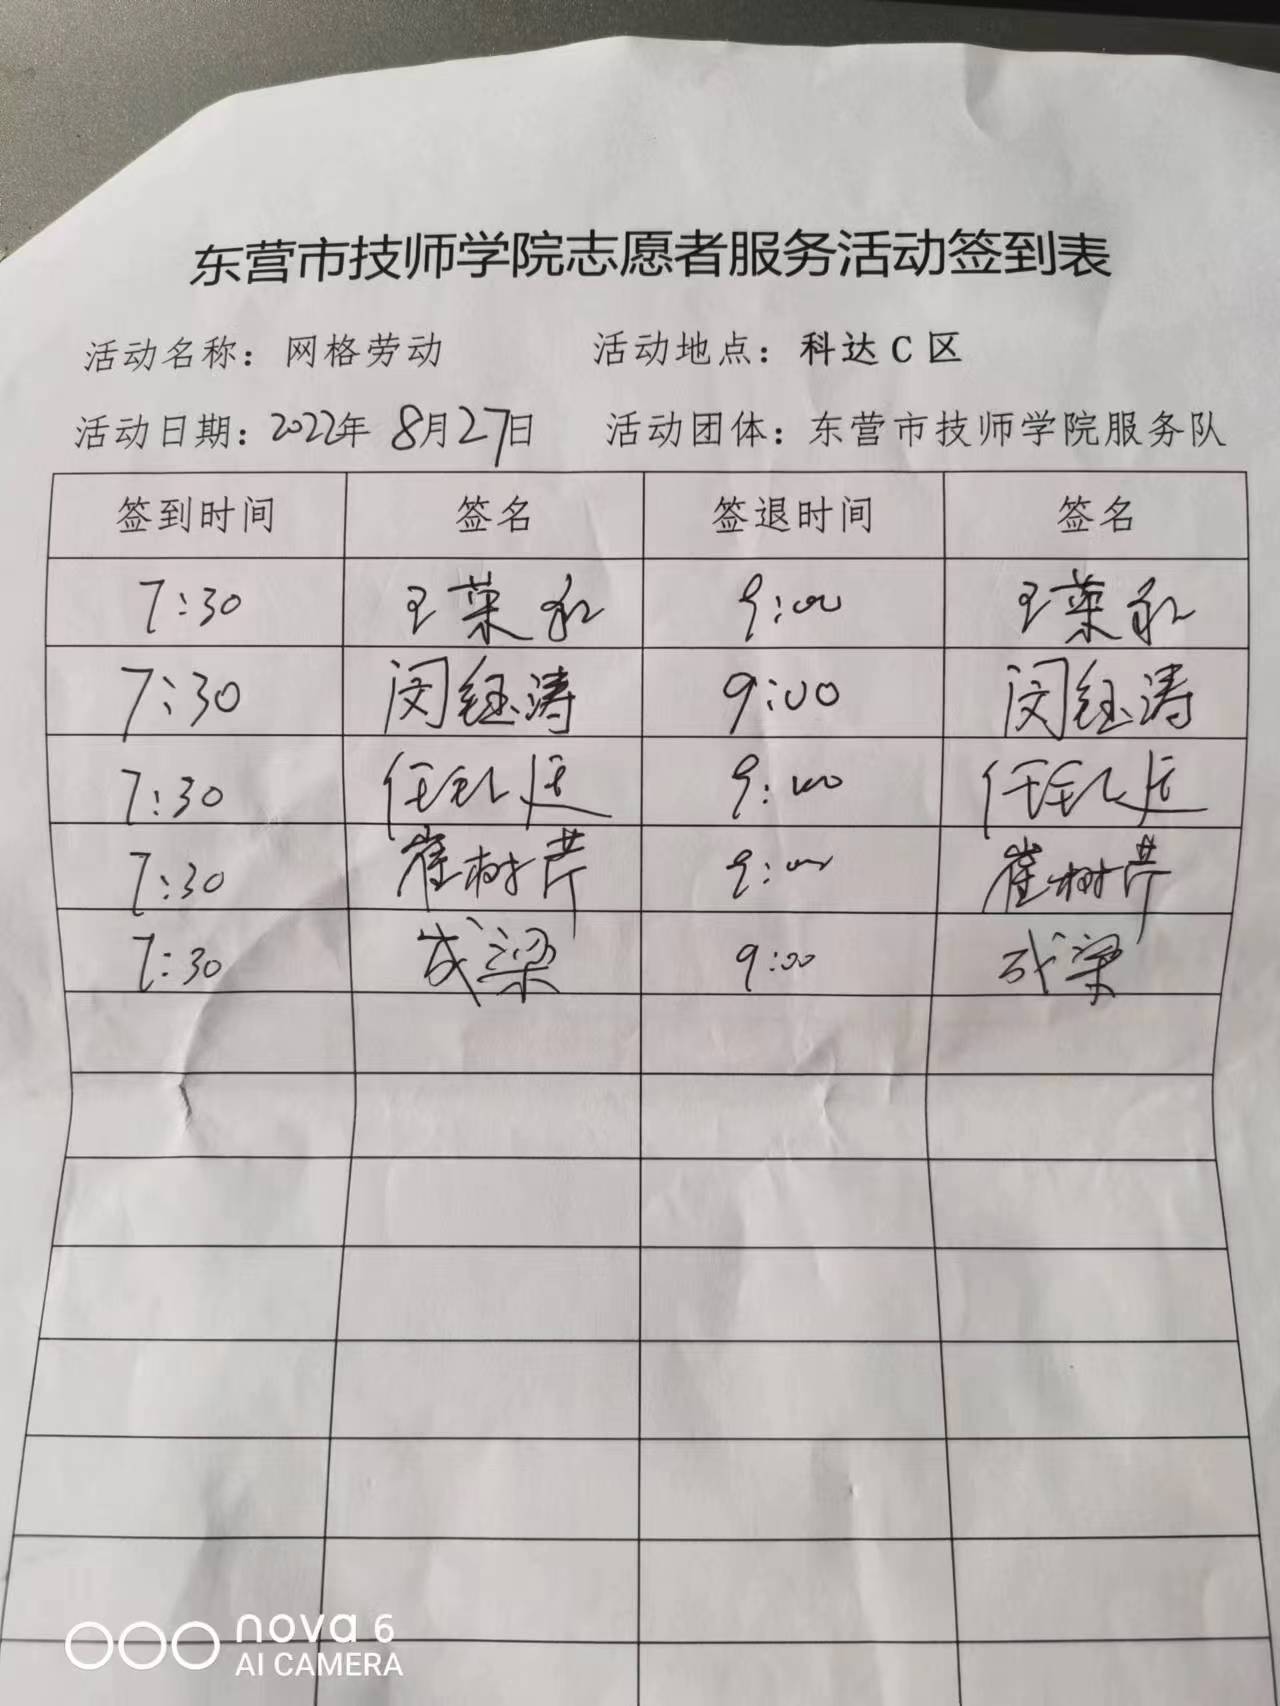 东营市技师学院志愿者服务活动签到表
活动名称：网格劳动 活动地点：科达C区
活动日期：2022年 8月27日 活动团体：东营市技师学院服务队
签到时间 签名 签退时间 签名
7:30 王荣 9:00 王荣
7:30 闵钰涛 9:00 闵钰涛
7:30 任 9:00 任
7:30 崔树芹 9:00 崔树芹
7:30 成梁 9:00 成梁
nova 6
AI CAMERA